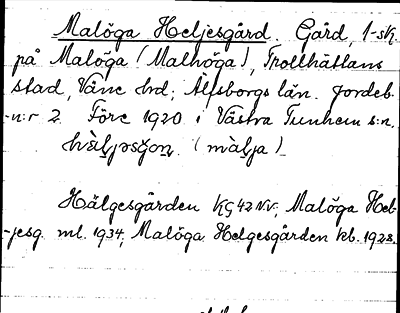 Malöga Heljesgård. Gård, 1-sk.
på Malöga (Malhöga), Trollhättans
stad, Väne hd; Älfsborgs län. Jordeb.
-n:r 2. Före 1920 i Västra Tunhem s:n.
(mal̥ja)
Hälgesgården KG 42 N.V.; Malöga Hel-
-jesg. ml. 1934; Malöga Helgesgården kb. 1928.